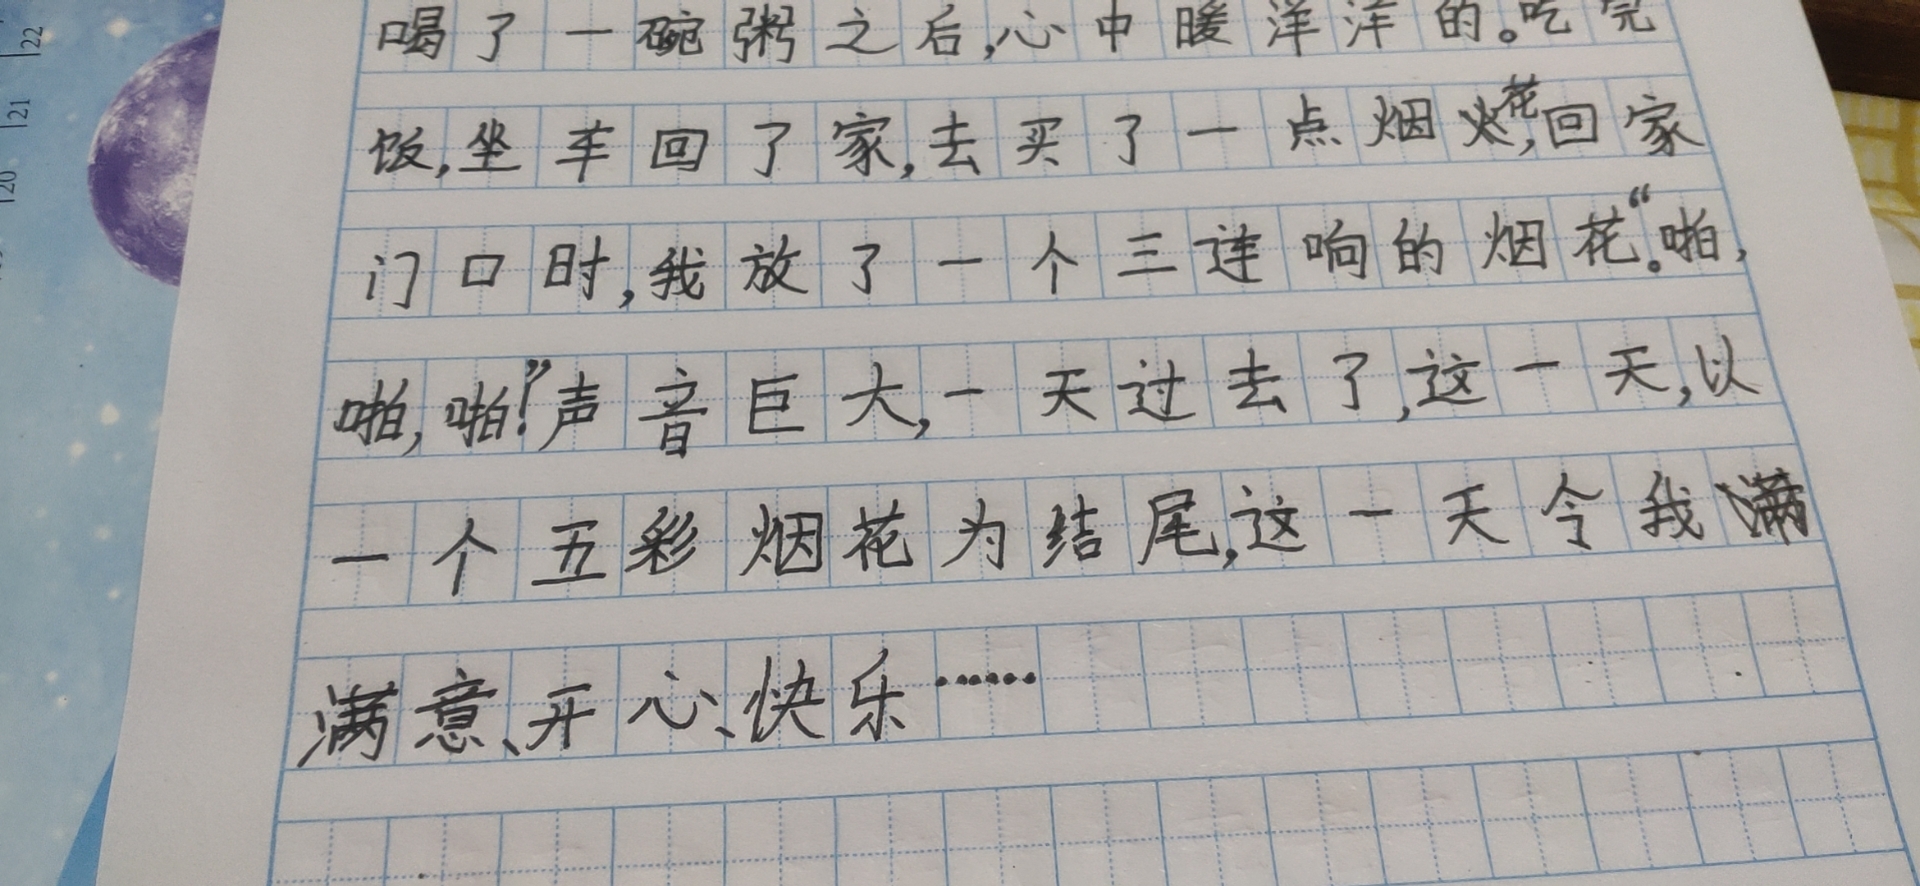 喝了一碗粥之后,心中暖洋洋的。吃完
饭,坐车回了家,去买了一点烟花,回家
门口时,我放了一个三连响的烟花。“啪,
啪,啪!”声音巨大,一天过去了,这一天,以
一个五彩烟花为结尾,这一天令我满
满意、开心、快乐……
22
21
20